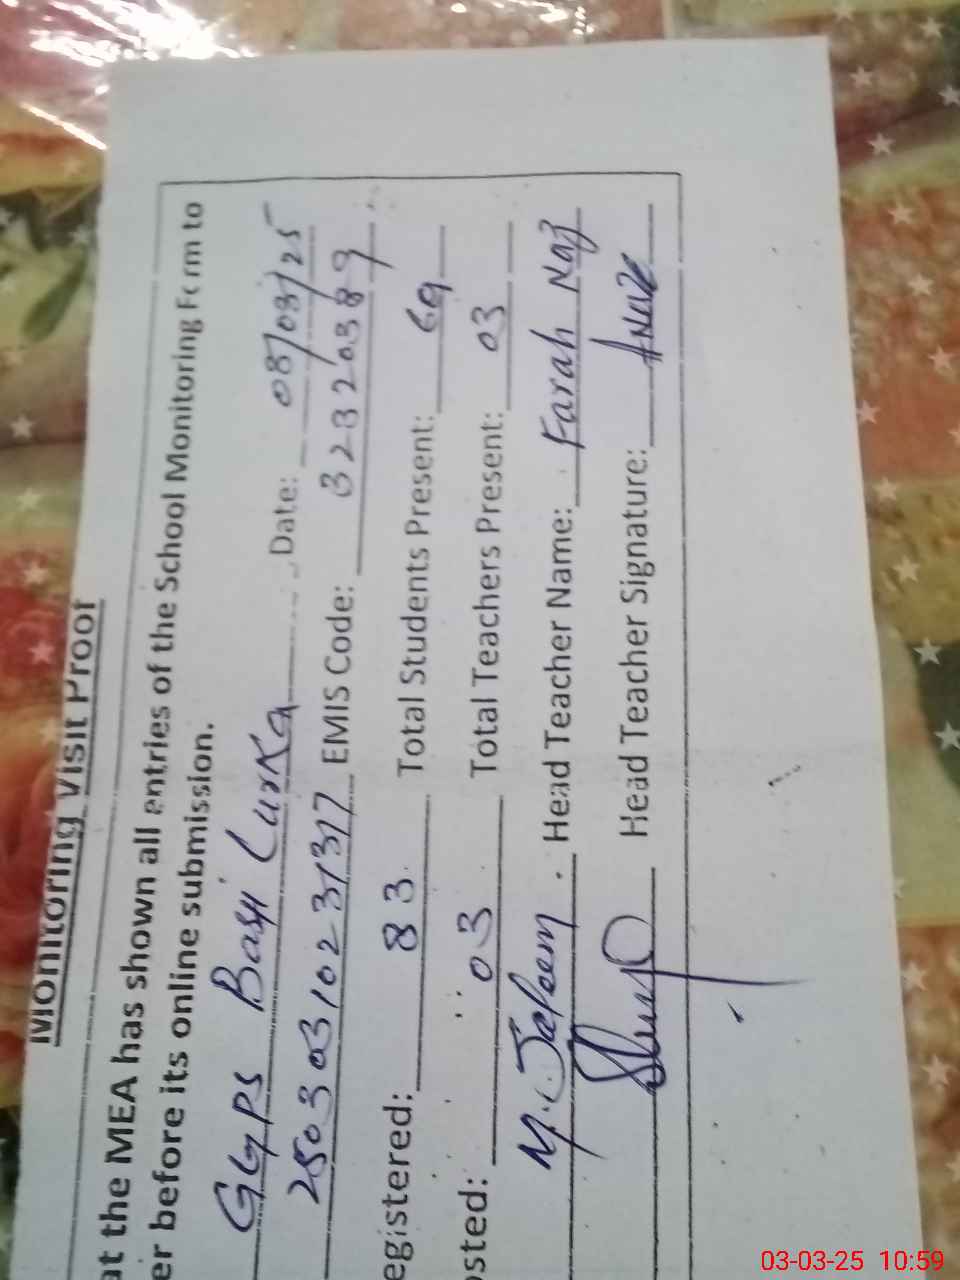 Monitoring Visit Proof
at the MEA has shown all entries of the School Monitoring Form to
er before its online submission.
GGPS Basti Lurka Date: 03/03/25
2503031023737 EMIS Code: 32320389
egistered: 83 Total Students Present: 69
osted: 03 Total Teachers Present: 03
M. Jaleem Head Teacher Name: Farah Naz
Head Teacher Signature:
03-03-25 10:59